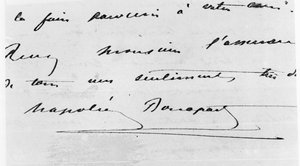 le faire parvenir à votre
Recevez monsieur l'assurance
de tous mes sentiments, très
Napoléon Bonaparte